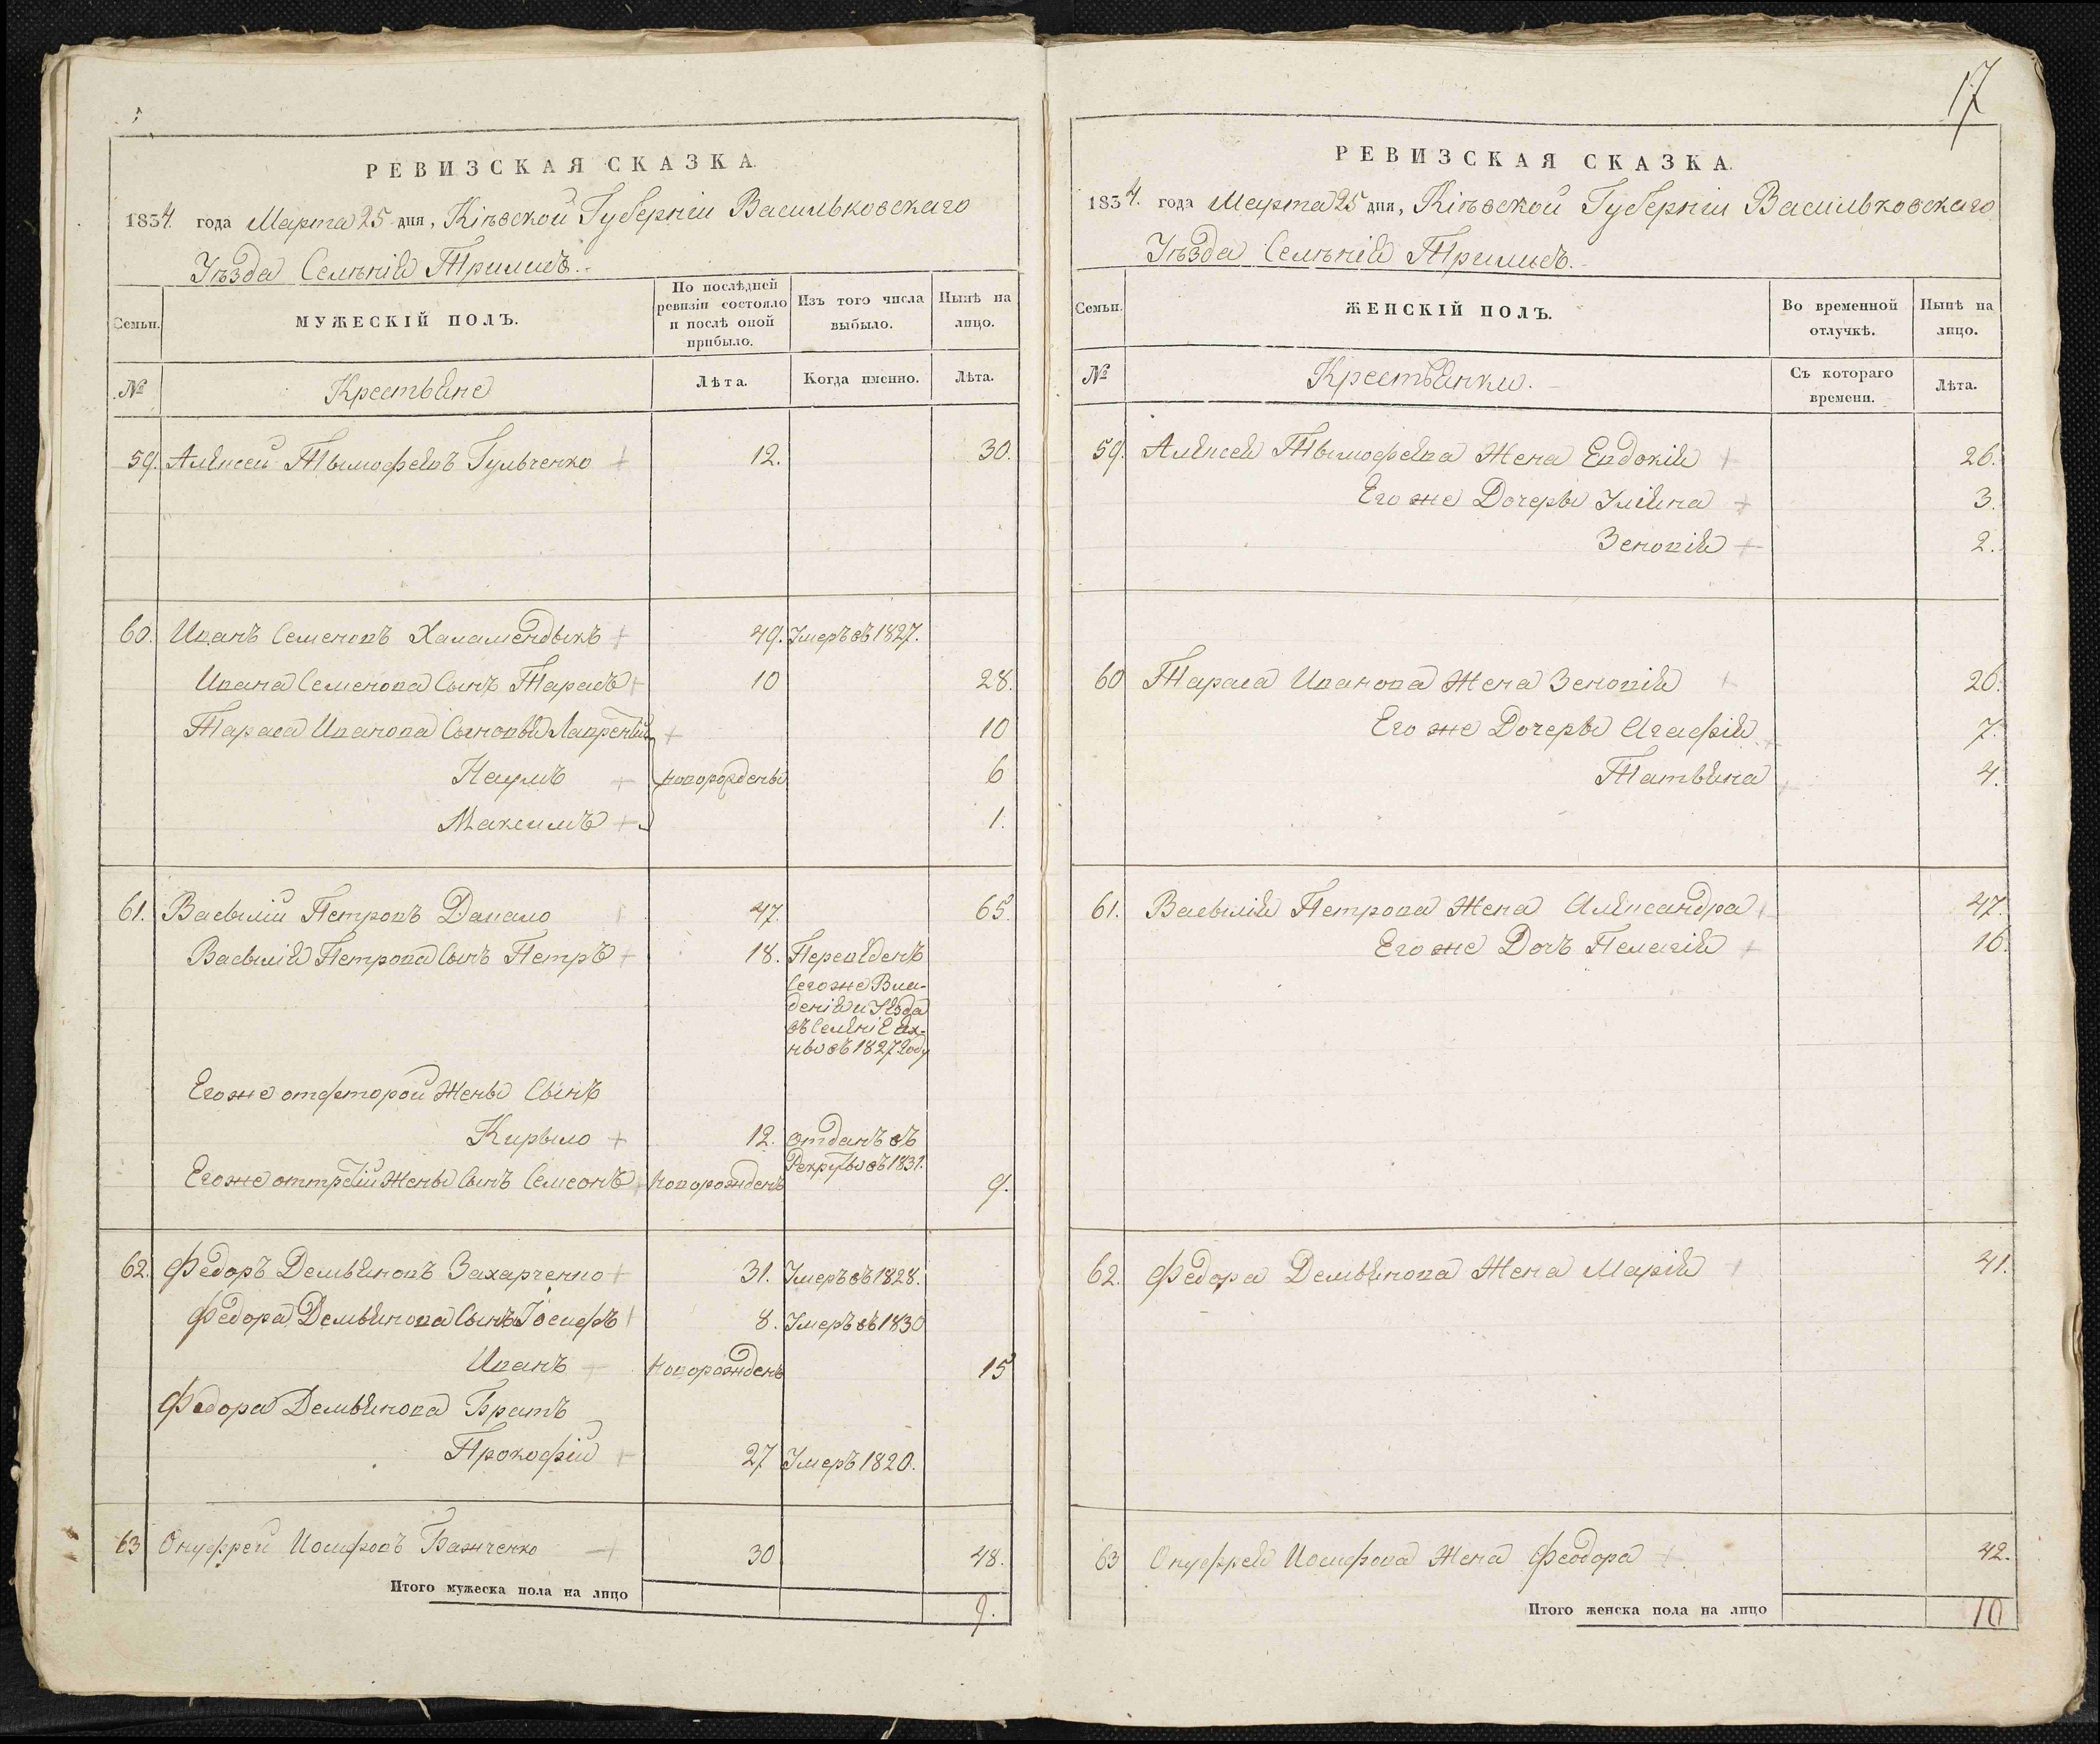 РЕВИЗСКАЯ СКАЗКА.
1834. года Марта 25 дня, Кіевской Губерніи Васильковскаго
Уѣзда Селѣнія Трилисъ.
Семьи.
МУЖЕСКІЙ ПОЛЪ.
По послѣдней ревизіи состояло и послѣ оной прибыло.
Изъ того числа выбыло.
Нынѣ на лицо.
№
Крестьяне
Лѣта.
Когда именно.
Лѣта.
59. Алексей Тымофеевъ Гульченко 12. 30.
60. Иванъ Семеновъ 49. Умеръ въ 1827.
Ивана Семенова Сынъ Тарасъ 10 28.
Тараса Иванова Сыновья Лаврентій 10
Наумъ новорождены 6
Максимъ 1.
61. Васылій Петровъ 47. 65.
Васылія Петрова Сынъ Петръ 18. Переведенъ
Сего же Вла-
денія и Уезда
въ
въ 1827 Году
Его же отфторой Жены Сынъ
Кирыло 12. отданъ въ
Рекруты въ 1831.
Его же оттретій Жены Сынъ Семеонъ Новорожденъ 9.
62. Федоръ Демьяновъ Захарченко 31. Умеръ въ 1828.
Федора Демьянова Сынъ Іосифъ 8. Умеръ въ 1830
Иванъ Новорожденъ 15
Федора Демьянова Братъ
Прокофій 27 Умеръ 1820.
63 Онуфрей Иосифовъ Бажченко 30 48.
Итого мужеска пола на лицо 9.
17
РЕВИЗСКАЯ СКАЗКА.
1834. года Марта 25 дня, Кіевской Губерніи Васильковскаго
Уѣзда Селѣнія Трилисъ.
Семьи.
ЖЕНСКІЙ ПОЛЪ.
Во временной отлучкѣ.
Нынѣ на лицо.
№
Крестьянки.
Съ котораго времени.
Лѣта.
59. Алексея Тымофеева Жена Евдокія 26.
Его же Дочеры Уліяна 3.
Зеновія 2.
60 Тараса Иванова Жена Зеновія 26.
Его же Дочеры Агафія 7.
Татьяна 4.
61. Васылія Петрова Жена Александра 47.
Его же Дочъ Пелагія 16.
62. Федора Демьянова Жена Марія 41.
63 Онуфрея Иосифова Жена Феодора 42.
Итого женска пола на лицо 10